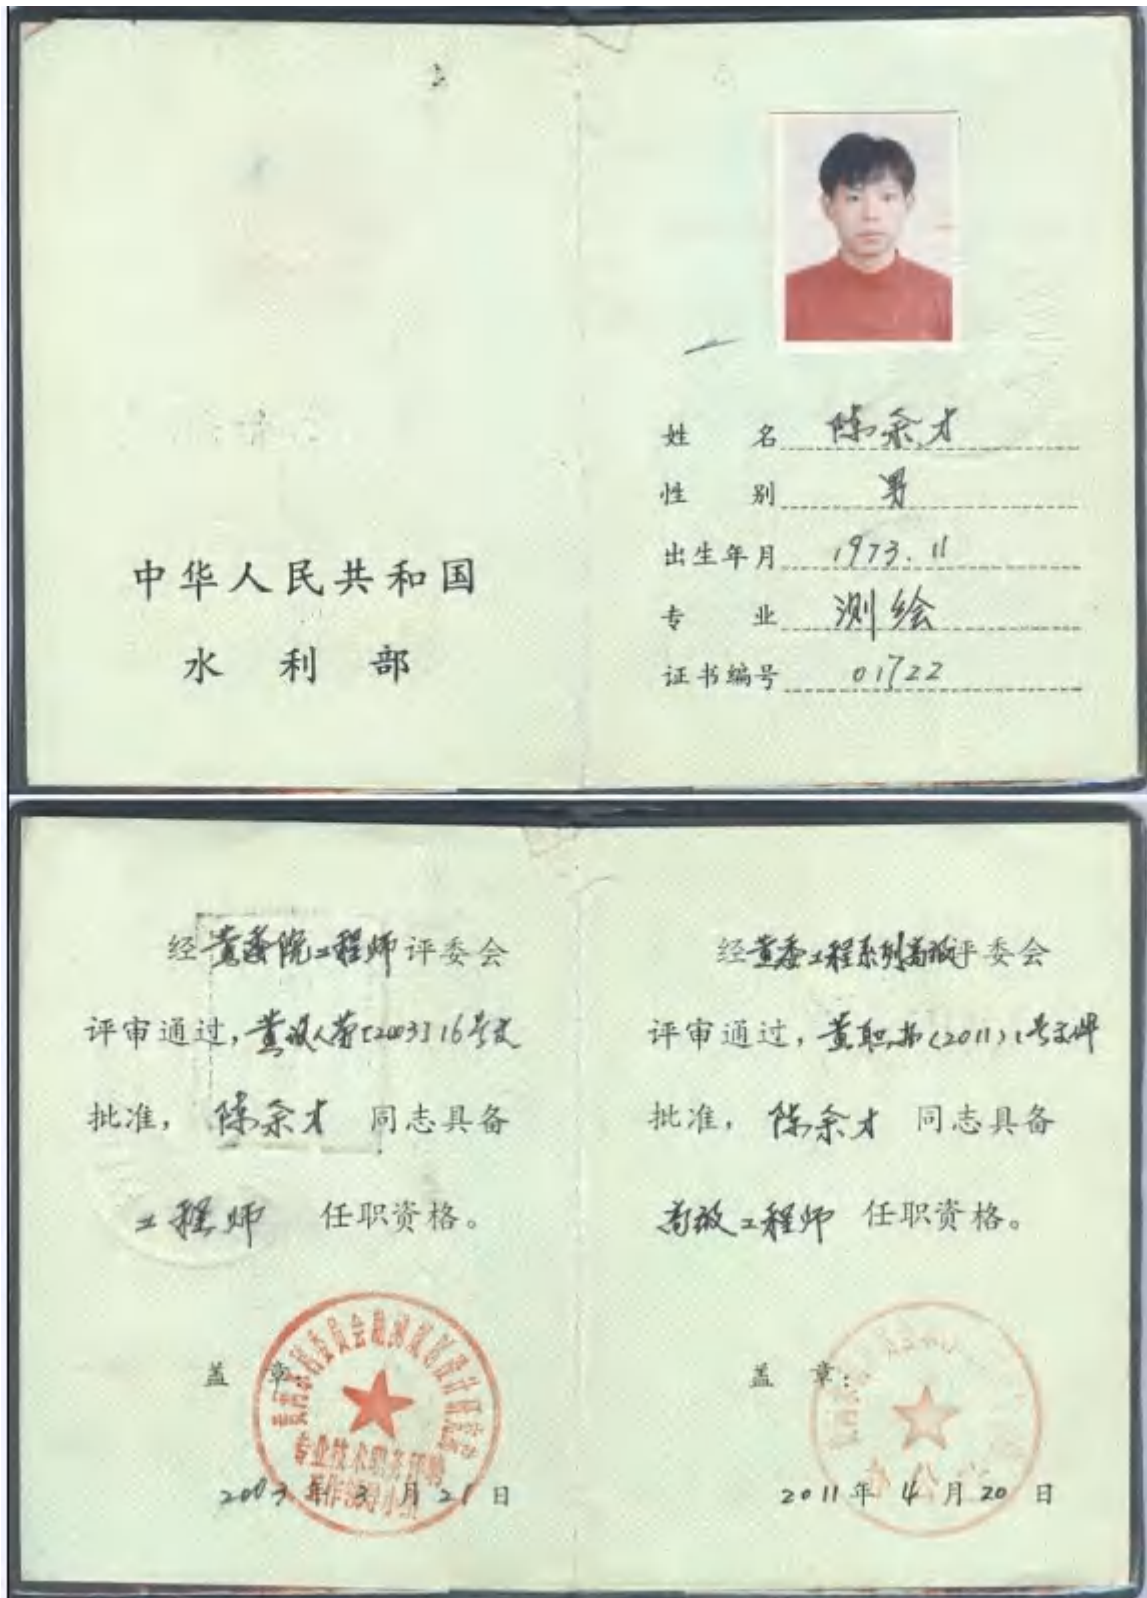 中华人民共和国
水利部
姓名 陈余才
性别 男
出生年月 1973.11
专业 测绘
证书编号 01722
经黄委院工程师评委会
评审通过，黄设人劳[2003]16号文
批准，陈余才 同志具备
工程师 任职资格。
盖章：
专业技术职务评聘
工作领导小组
2003年3月21日
经黄委工程系列高级评委会
评审通过，黄职(2011)1号文
批准，陈余才 同志具备
高级工程师 任职资格。
盖章：
办公室
2011年4月20日